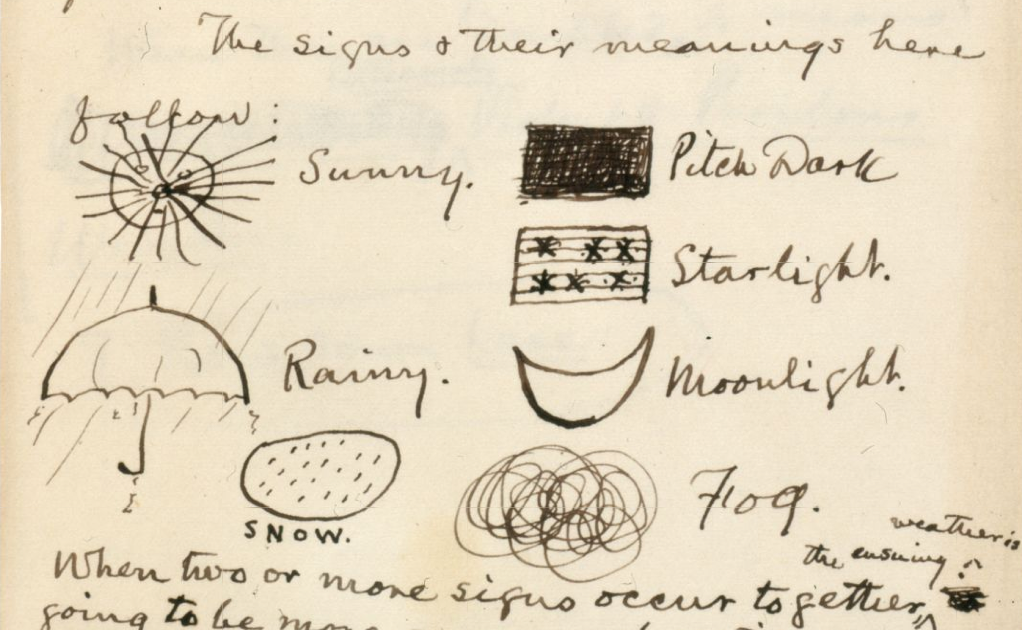 The signs & their meanings here
follow:
Sunny.
Pitch Dark
Starlight.
Rainy.
Moonlight.
SNOW.
Fog.
weather is
the ensuing
When two or more signs occur together,
going to be more